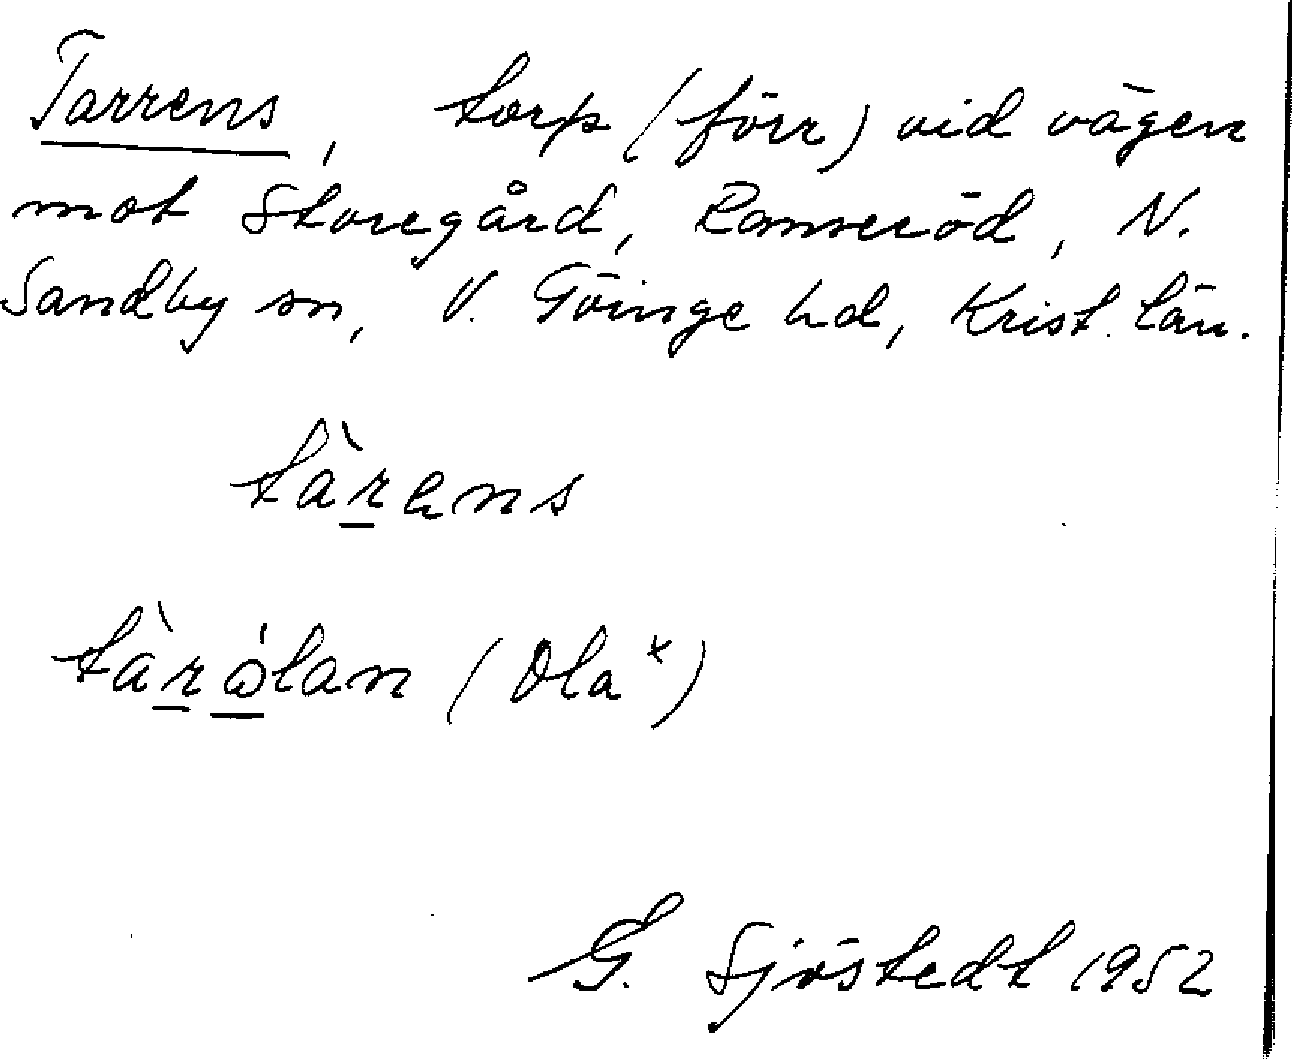 Tarrens, torp (förr) vid vägen
mot Storegård, Ramseröd, N.
Sandby sn, V. Göinge hd, Krist. län.
tàrens
tàrólan (Ola*)
G. Sjöstedt 1952